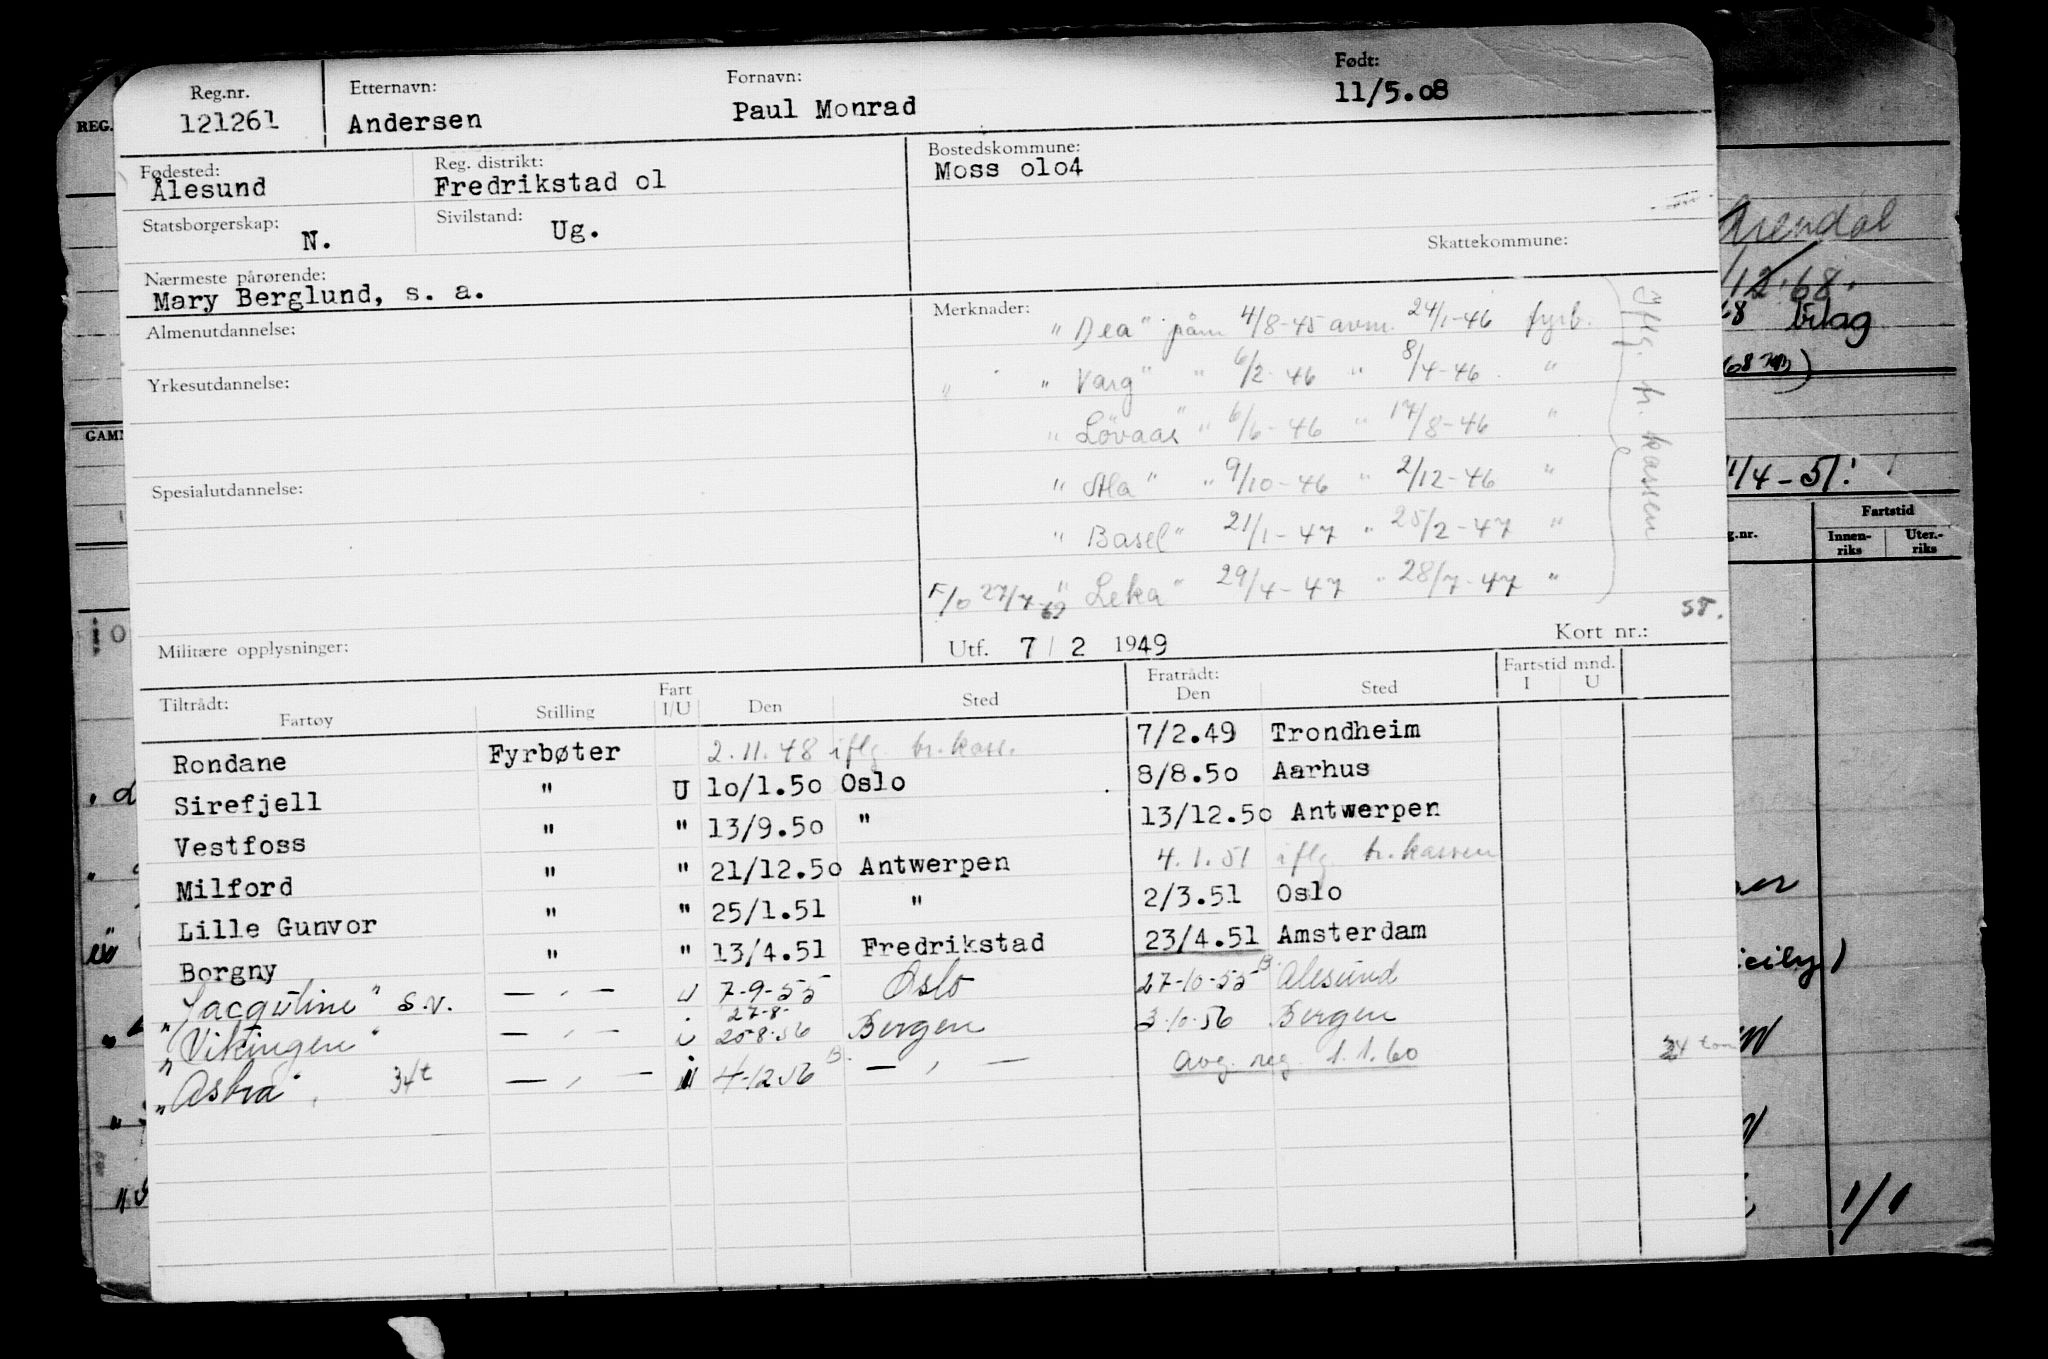 Reg.nr. Etternavn: Fornavn: Født:
121261 Andersen Paul Monrad 11/5.08
Fødested: Reg. distrikt: Bostedskommune:
Ålesund Fredrikstad 01 Moss 0104
Statsborgerskap: Sivilstand:
N. Ug.
Skattekommune:
Nærmeste pårørende:
Mary Berglund, s. a.
Almenutdannelse:
Yrkesutdannelse:
Spesialutdannelse:
Militære opplysninger:
Merknader:
"Dea" påm 4/8-45 avm. 24/1-46 fyrb.
" "Varg" " 6/2-46 " 8/4-46 "
"Lövaas" " 6/6-46 " 17/8-46 "
"Ala" " 9/10-46 " 2/12-46 "
"Basel" 21/1-47 " 25/2-47 "
F/o 27/7-62 "Leka" 29/4-47 " 28/7-47 "
Iflg. tr. kassen
ST.
Utf. 7/2 1949 Kort nr.:
Tiltrådt: Fratrådt: Fartstid mnd.
Fartøy Stilling Fart I/U Den Sted Den Sted I U
Rondane Fyrbøter 2.11.48 iflg. tr.kass. 7/2.49 Trondheim
Sirefjell " U 10/1.50 Oslo 8/8.50 Aarhus
Vestfoss " " 13/9.50 " 13/12.50 Antwerpen
Milford " " 21/12.50 Antwerpen 4.1.51 iflg. tr.kassen
Lille Gunvor " " 25/1.51 " 2/3.51 Oslo
Borgny " " 13/4.51 Fredrikstad 23/4.51 Amsterdam
"Jacquline" S.V. — " — U 7-9-55 Oslo 27-10-55 B. Ålesund
27-8-
"Vikingen" — " — U 25-8-56 Bergen 3-10-56 Bergen
"Astra", 34t — " — 4-12.56 B. — " — avg. reg. 1.1.60 34 ton
REG.
GAM
Arendal
/12.68.
68 bilag
1/4-51!
Fartstid
g.nr. Innen-riks Uter.-riks
icily)
1/1